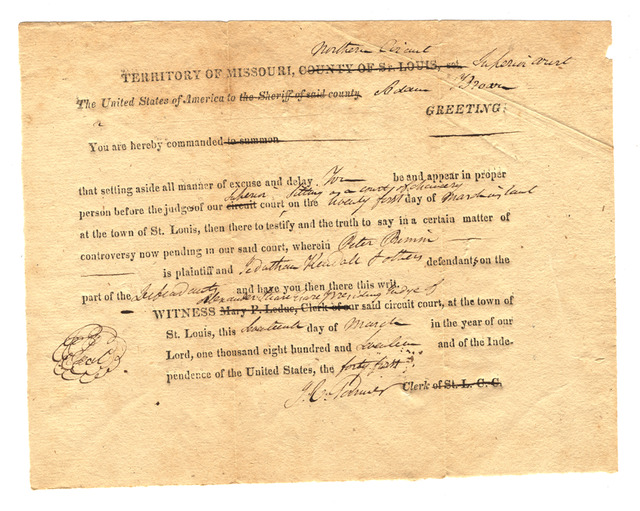 Northern Circuit
TERRITORY OF MISSOURI, COUNTY OF St. LOUIS, sct. Superior court
The United States of America to the Sheriff of said county. Adam Brown
GREETING:
You are hereby commanded to summon
that setting aside all manner of excuse and delay You be and appear in proper
Superior sitting as a court of chancery
person before the judges of our circuit court on the twenty first day of March instant
at the town of St. Louis, then there to testify and the truth to say in a certain matter of
controversy now pending in our said court, wherein Peter
is plaintiff and Kendall & others defendants on the
part of the and have you then there this writ.
Alexander presiding Judge of
WITNESS Mary P. Leduc, Clerk of our said circuit court, at the town of
St. Louis, this day of March in the year of our
Lord, one thousand eight hundred and and of the Inde-
pendence of the United States, the forty first
Seal
Clerk of St. L. C. C.